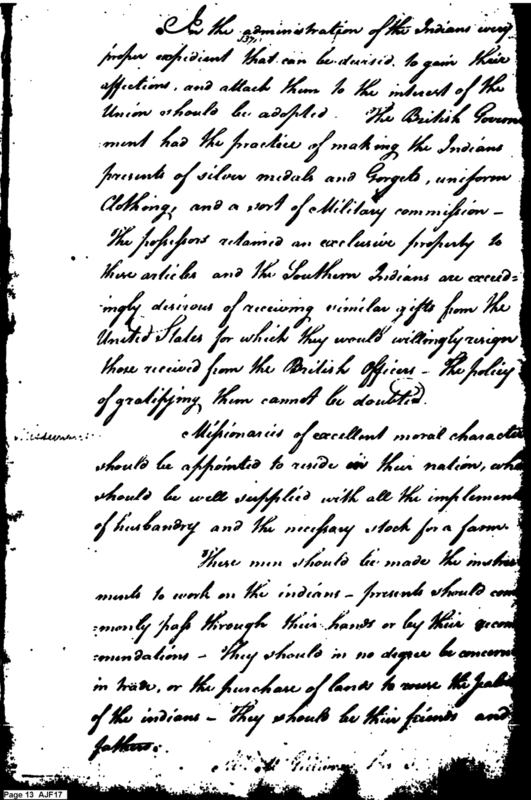 In the administration of the Indians every
137,
proper expedient that can be devised, to gain their
affections, and attach them to the interest of the
Union should be adopted. The British Govern
ment had the practice of making the Indians
presents of silver medals and Gorgets, uniform
Clothing, and a sort of Military commission –
The possessors retained an exclusive property to
these articles and the Southern Indians are exceed=
ingly desirous of receiving similar gifts from the
United States for which they would willingly resign
those received from the British Officers – The policy
of gratifying them cannot be doubted.
Missionaries of excellent moral character
should be appointed to reside in their nation, who
should be well supplied with all the implemen
of husbandry and the necessary stock for a farm
These men should be made the instru
ments to work on the indians – presents should com
monly pass through their hands or by their recom
mendations – They should in no degree be concern
in trade, or the purchase of lands to rouse the Jealou
of the indians – They should be their friends and
fathers.
Page 13 AJF17